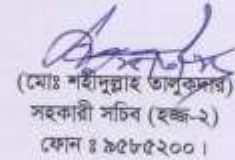 (মোঃ শহীদুল্লাহ তালুকদার)
সহকারী সচিব (হজ্জ-২)
ফোন ঃ ৯৫৮৫২০০।